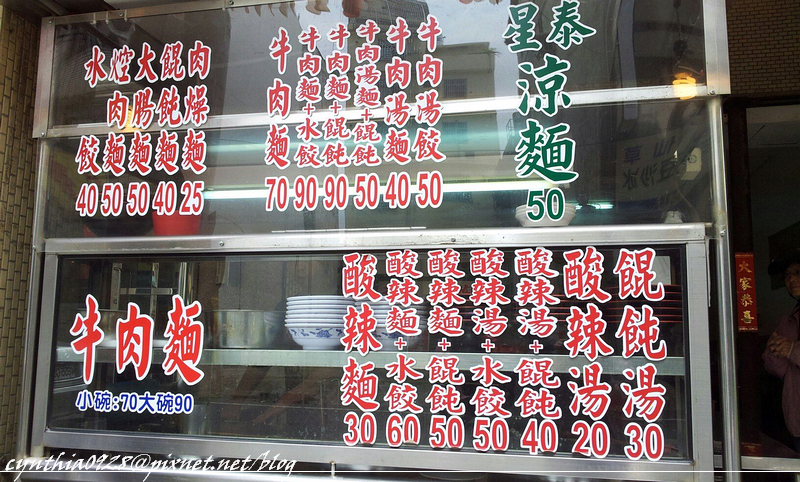 水餃40
焢肉麵50
大腸麵50
餛飩麵40
肉燥麵25
牛肉麵70
牛肉麵+水餃90
牛肉麵+餛飩90
牛肉湯麵+餛飩50
牛肉湯麵40
牛肉湯餃50
星泰
涼麵
50
牛肉麵
小碗:70大碗90
酸辣麵30
酸辣麵+水餃60
酸辣麵+餛飩50
酸辣湯+水餃50
酸辣湯+餛飩40
酸辣湯20
餛飩湯30
大家恭喜
cynthia0928@pixnet.net/blog